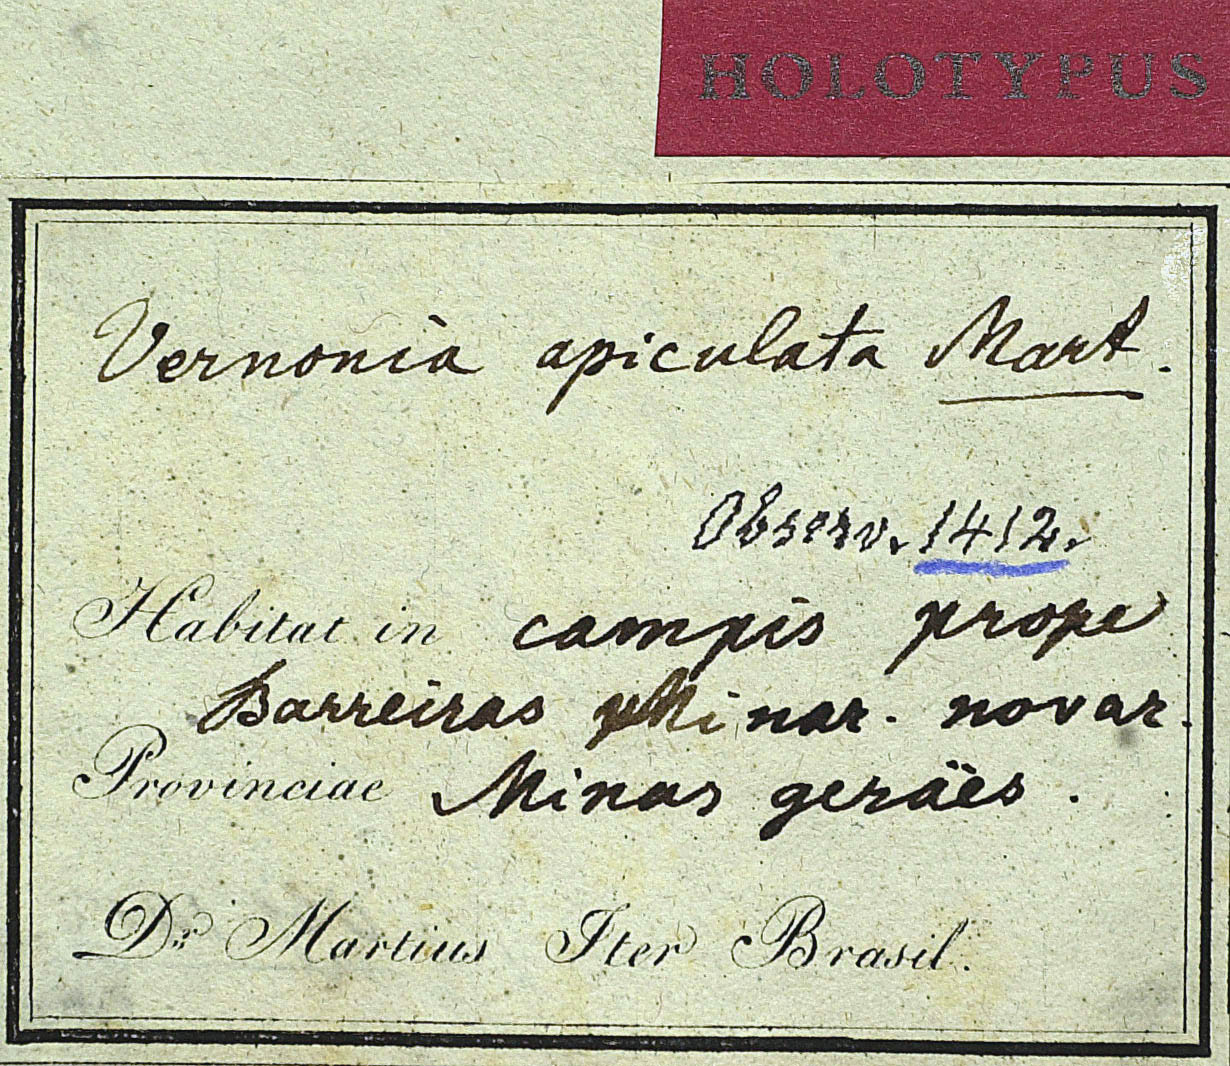 HOLOTYPUS
Vernonia apiculata Mart.
Observ. 1412.
Habitat in campis prope
Barreiras Minar. novar.
Provinciae Minas geräës.
Dr. Martius Iter Brasil.